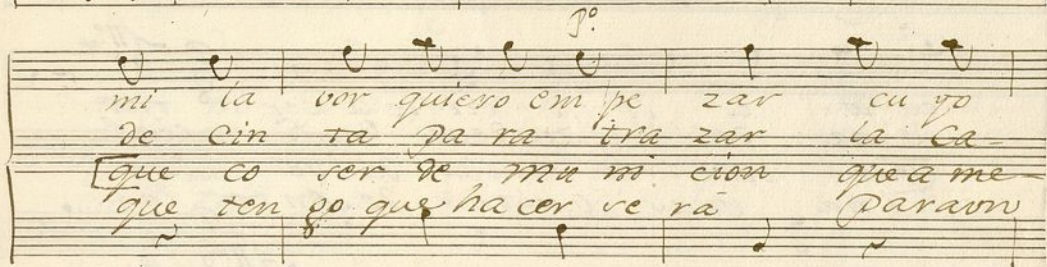 Pº
mi la vor quiero em pe zar cu yo
de cin ta pa ra tra zar la ca-
que co ser de mu ni cion que a me-
que ten go que ha cer se rá para un